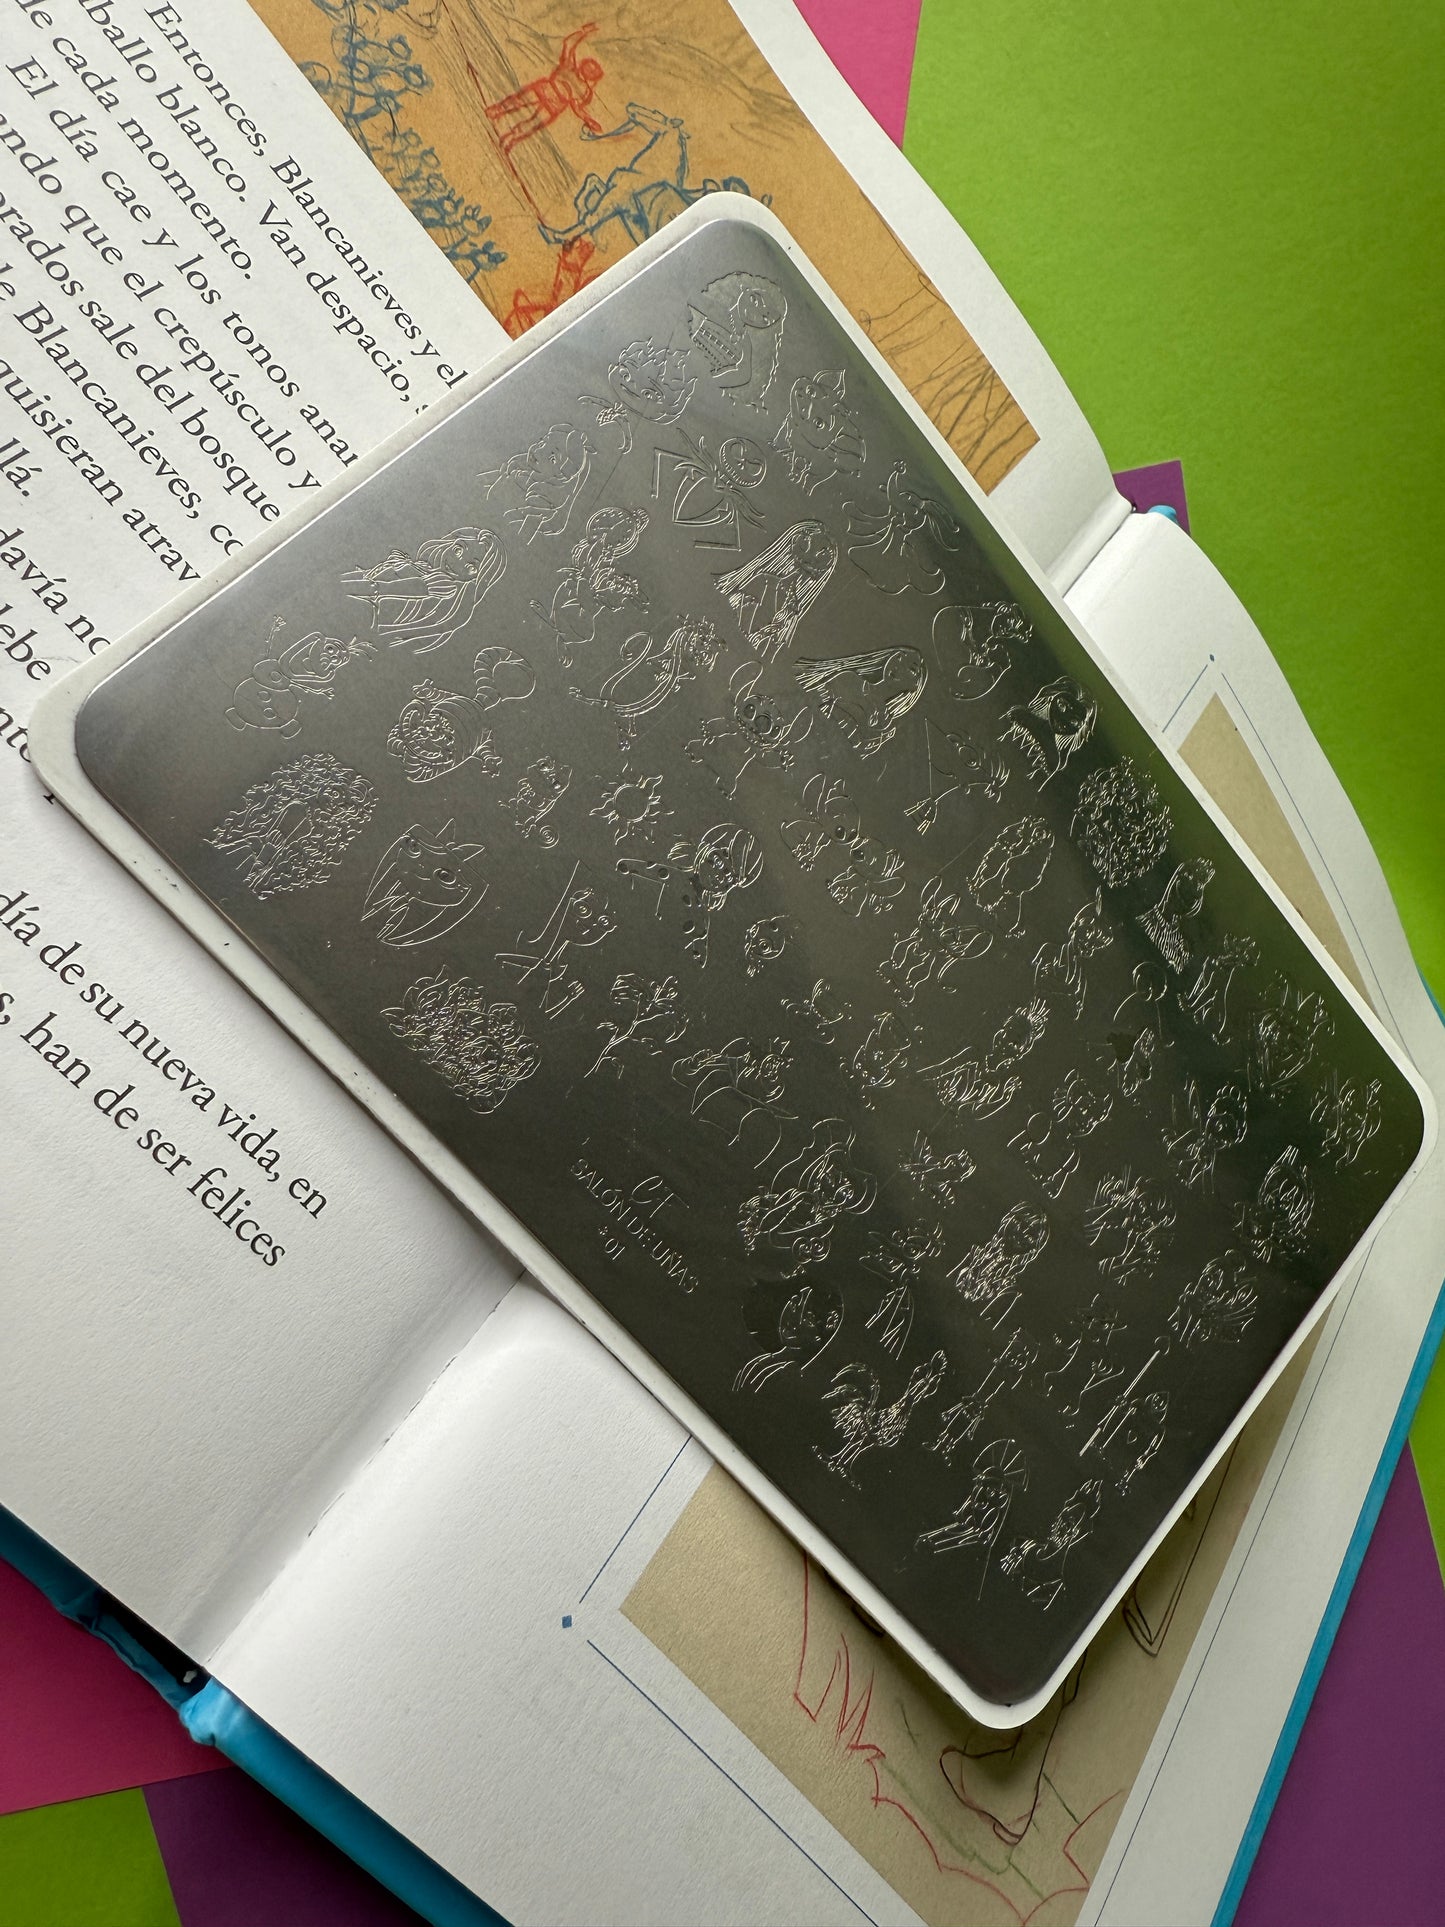 Entonces, Blancanieves y el
ballo blanco. Van despacio,
de cada momento.
El día cae y los tonos anar
ando que el crepúsculo y
orados sale del bosque
e Blancanieves, co
quisieran atrav
llá.
davía no
ebe
nte
día de su nueva vida, en
s, han de ser felices
CF
SALÓN DE UÑAS
+01